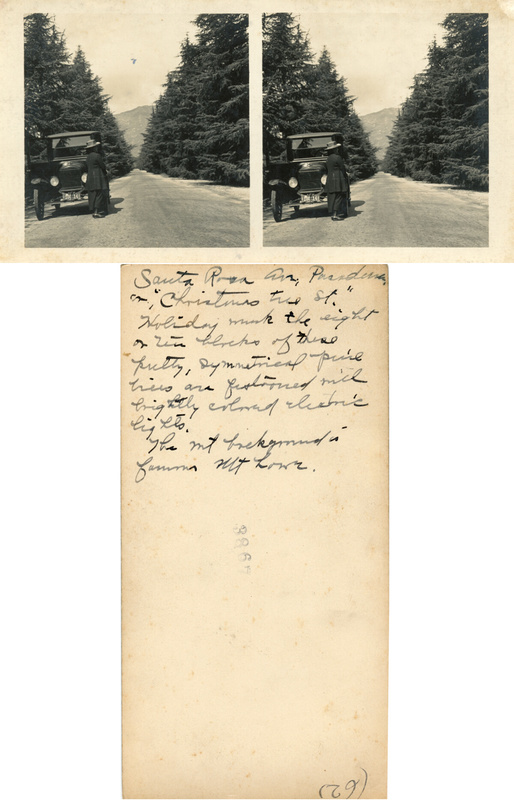 Santa Rosa Av, Pasadena,
or, "Christmas tree St."
Holiday week the eight
or ten blocks of these
pretty, symmetrical pine
trees are festooned with
brightly colored electric
lights.
The mt background is
famous Mt Lowe.
(62)